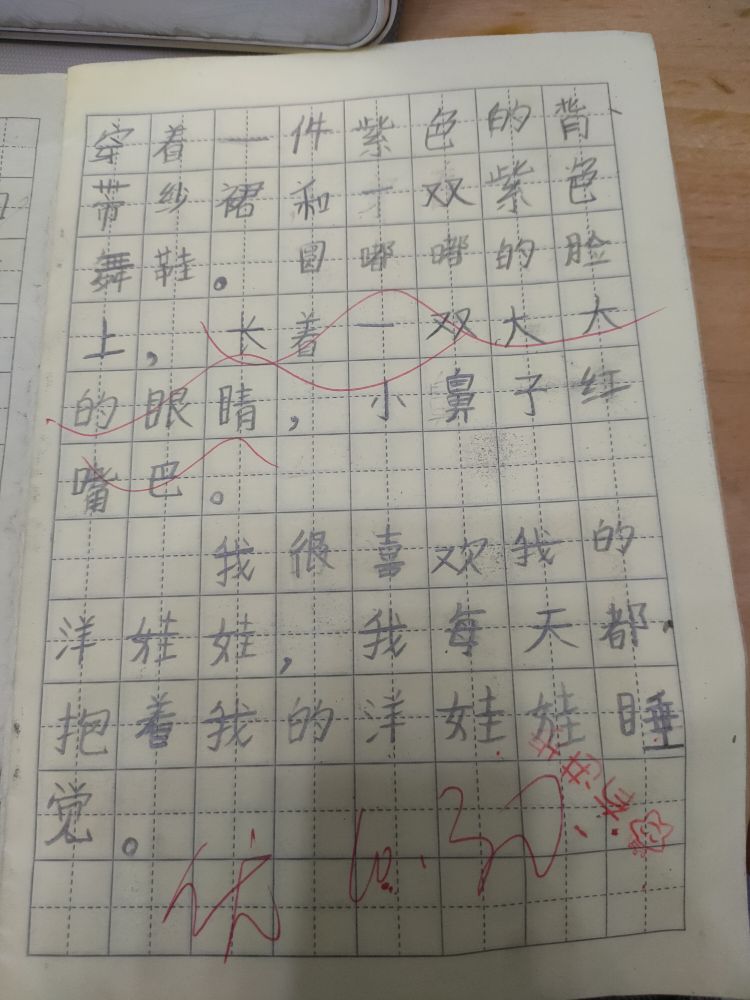 穿着一件紫色的背
带纱裙和一双紫色
舞鞋。圆嘟嘟的脸
上，长着一双大大
的眼睛，小鼻子红
嘴巴。
我很喜欢我的
洋娃娃，我每天都
抱着我的洋娃娃睡
觉。
有进步
优 10.30